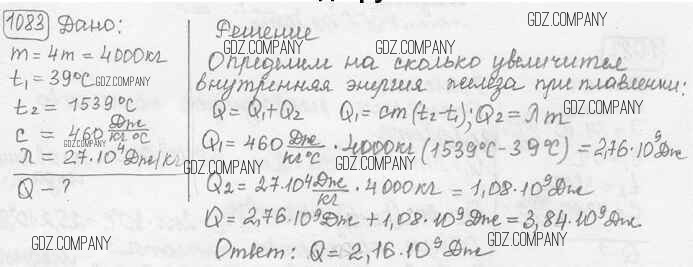 1083 Дано:
m = 4т = 4000кг
t₁ = 39°С
t₂ = 1539°С
с = 460 Дж/кг°С
λ = 27·10⁴ Дж/кг
Q - ?
Решение
Определим на сколько увеличится
внутренняя энергия железа при плавлении:
Q = Q₁ + Q₂ Q₁ = cm(t₂-t₁); Q₂ = λm
Q₁ = 460 Дж/кг°С · 4000кг (1539°С - 39°С) = 2,76·10⁹Дж
Q₂ = 27·10⁴ Дж/кг · 4000кг = 1,08·10⁹Дж
Q = 2,76·10⁹Дж + 1,08·10⁹Дж = 3,84·10⁹Дж
Ответ: Q = 2,16·10⁹Дж
GDZ.COMPANY
GDZ.COMPANY
GDZ.COMPANY
GDZ.COMPANY
GDZ.COMPANY
GDZ.COMPANY
GDZ.COMPANY
GDZ.COMPANY
GDZ.COMPANY
GDZ.COMPANY
GDZ.COMPANY